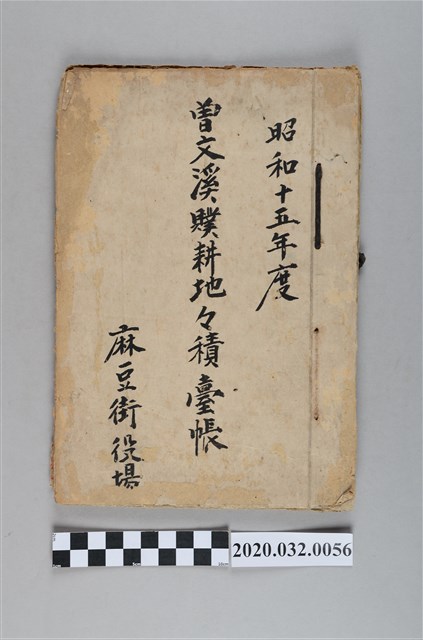 昭和十五年度
曽文溪贌耕地々積臺帳
麻豆街役場
2020.032.0056